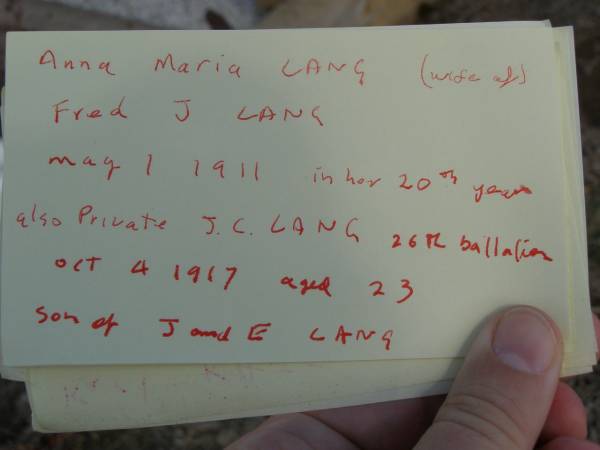 Anna Maria LANG (wife of)
Fred J LANG
may 1 1911 in her 20th year
also Private J.C. LANG 26th battalion
oct 4 1917 aged 23
son of J and E LANG